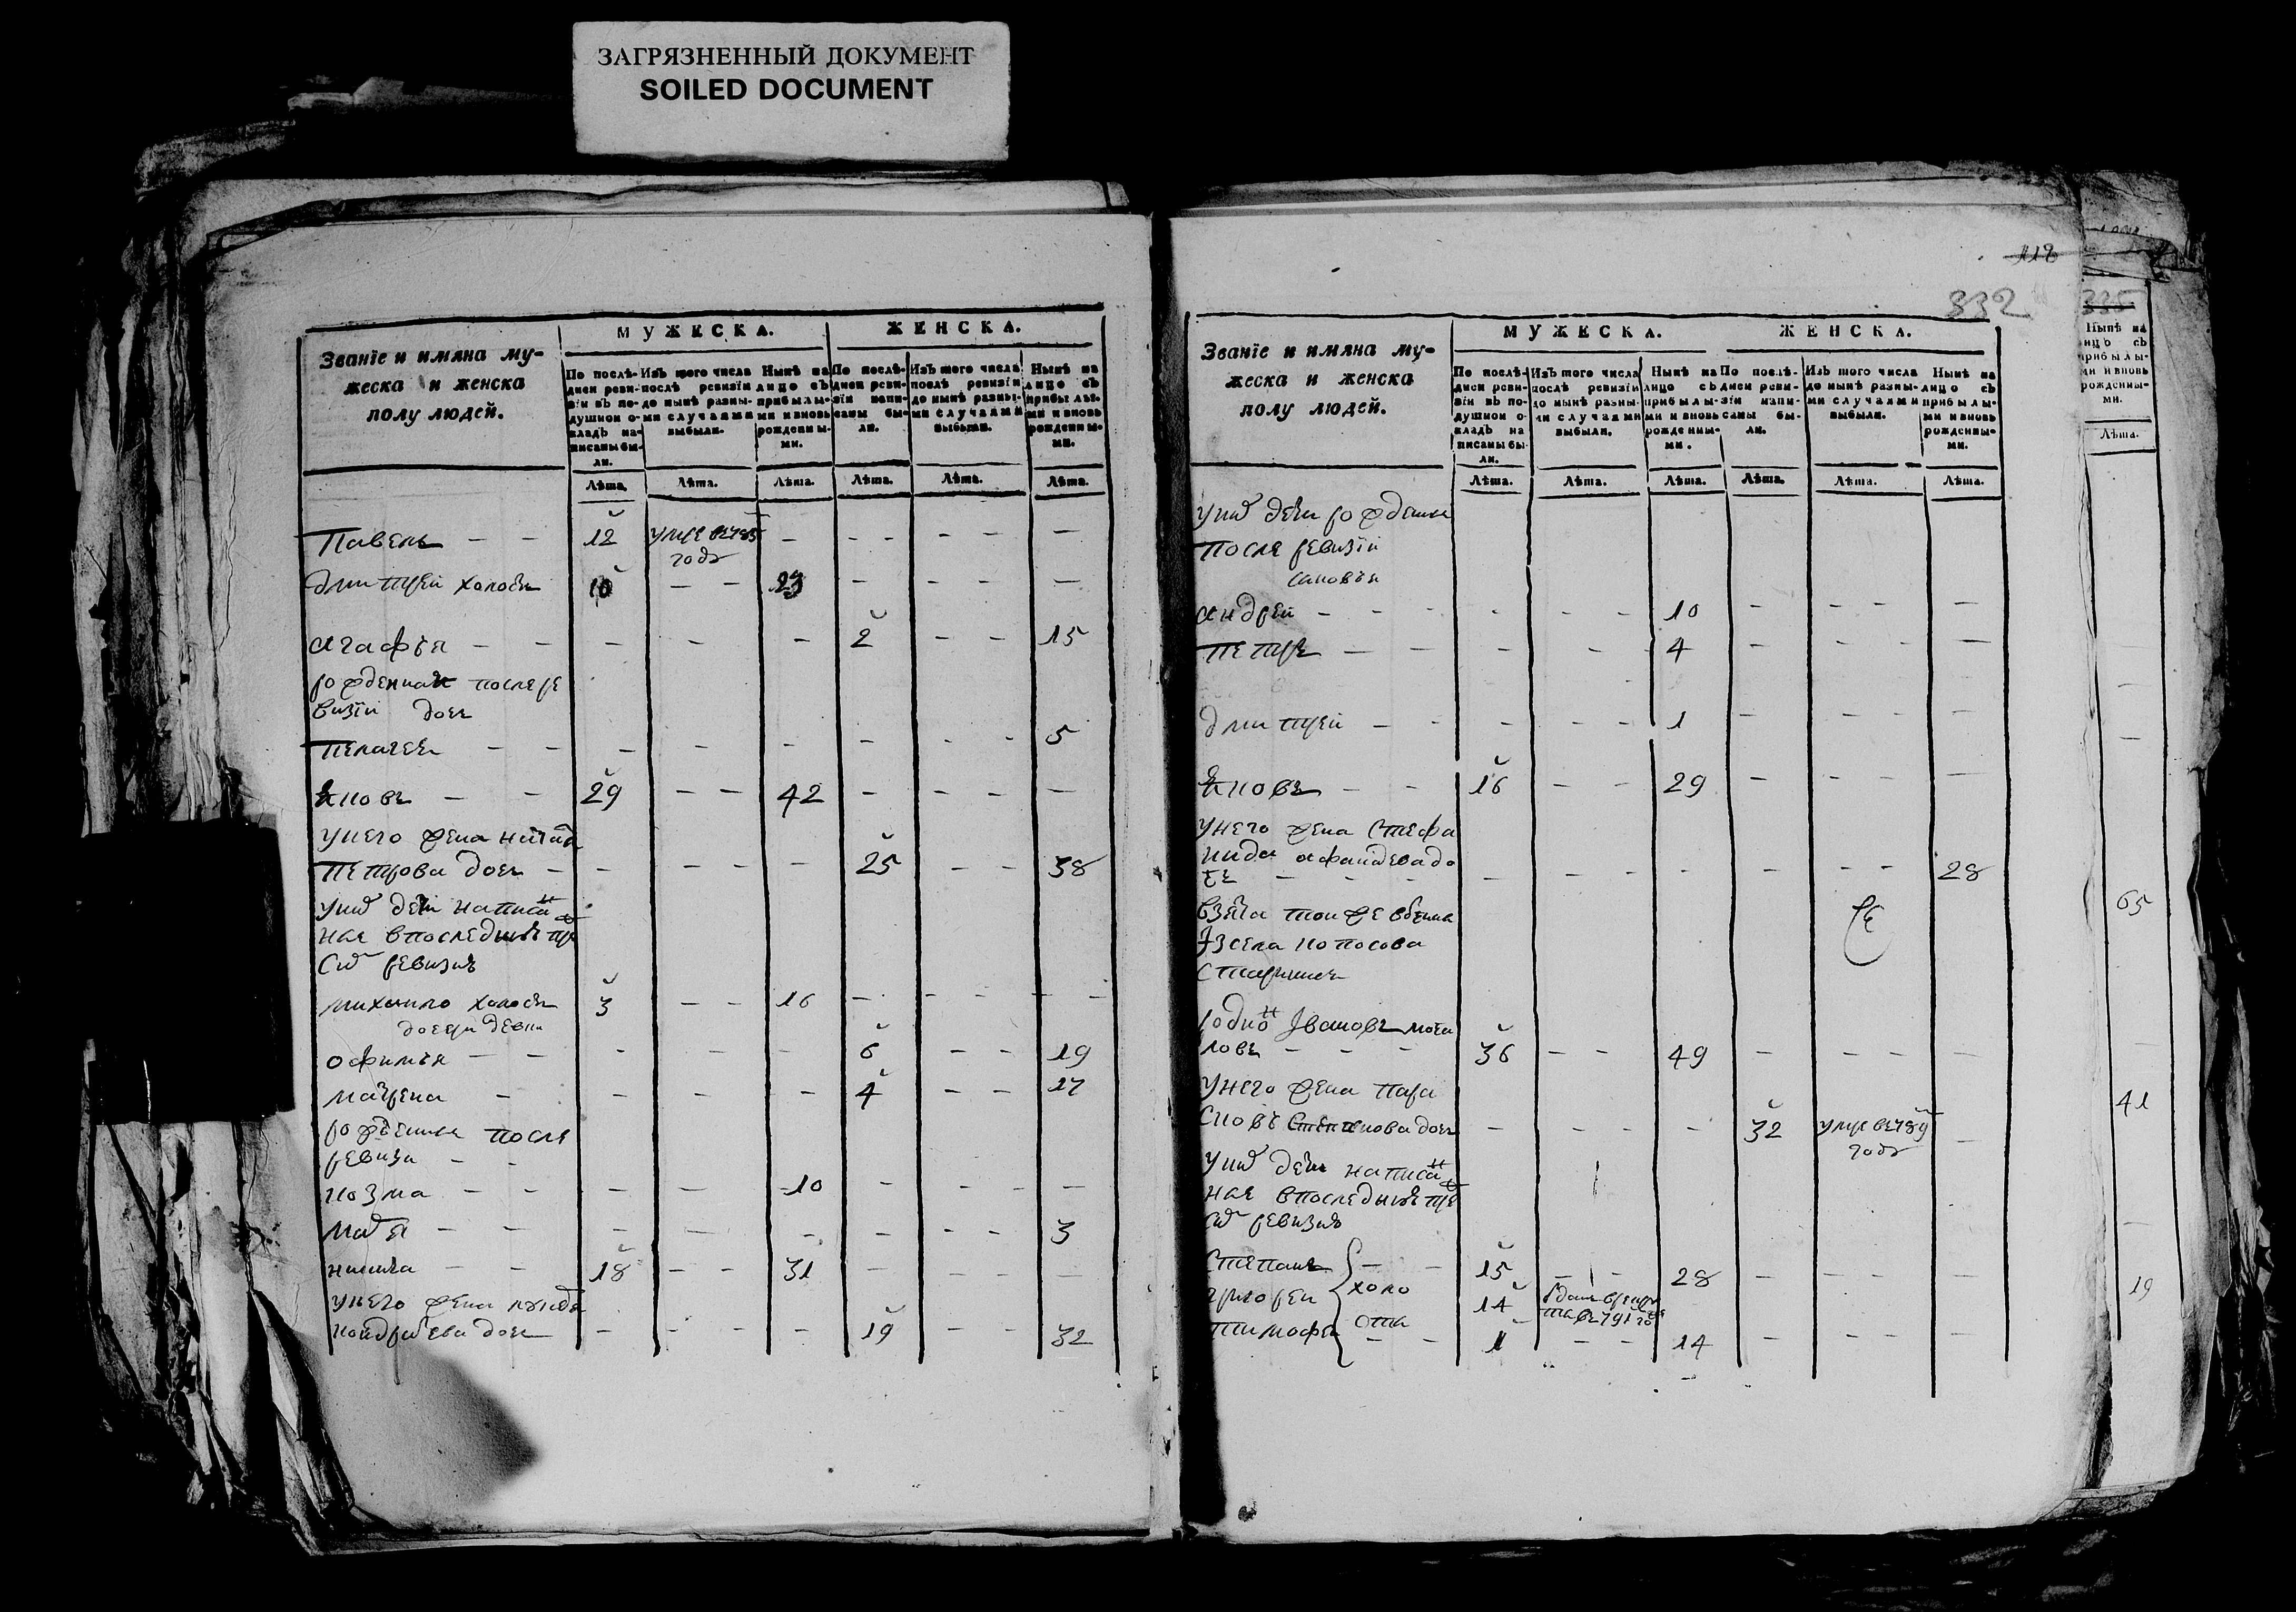 ЗАГРЯЗНЕННЫЙ ДОКУМЕНТ
SOILED DOCUMENT
Званїе и имяна му-
жеска и женска
полу людей.
МУЖЕСКА.
ЖЕНСКА.
По послѣ-
дней реви-
зїи въ по-
душной о-
кладъ на-
писаны бы-
ли.
Изъ того числа
послѣ ревизїи
до нынѣ разны-
ми случаями
выбыли.
Нынѣ на
лицо съ
прибылы-
ми и вновь
рожденны-
ми.
По послѣ-
дней реви-
зїи напи-
саны бы-
ли.
Изъ того числа
послѣ ревизїи
до нынѣ разны-
ми случаями
выбыли.
Нынѣ на
лицо съ
прибылы-
ми и вновь
рожденны-
ми.
Лѣта. Лѣта. Лѣта. Лѣта. Лѣта. Лѣта.
Павелъ — — 12 умре в 1785 — — — — —
году
Дмитрей холостъ 10 — — 23 — — — —
Агафья — — — — — 2 — — 15
рожденная после ре
визїи дочь
Пелагея — — — — — — — — 5
Яковъ — — 29 — — 42 — — — —
у него жена
Петрова дочь — — — — — 25 — — 38
у них дети написан
ные в последней пре
ревизии
Михайло холостъ 3 — — 16 — — — — —
дочери девки
Офимья — — — — — 6 — — 19
Матрена — — — — 4 — — 17
рожденные после
ревизи — —
Козма — — — — 10 — — — —
— — — — — — — — 3
Никита — — 18 — — 31 — — — —
у него жена
дочь — — — — 19 — — 32
118
332
Званїе и имяна му-
жеска и женска
полу людей.
МУЖЕСКА.
ЖЕНСКА.
По послѣ-
дней реви-
зїи въ по-
душной о-
кладъ на
писаны бы-
ли.
Изъ того числа
послѣ ревизїи
до нынѣ разны-
ми случаями
выбыли.
Нынѣ на
лицо съ
прибылы-
ми и вновь
рожденны-
ми.
По послѣ-
дней реви-
зїи напи-
саны бы-
ли.
Изъ того числа
до нынѣ разны-
ми случаями
выбыли.
Нынѣ на
лицо съ
прибылы-
ми и вновь
рожденны-
ми.
Лѣта. Лѣта. Лѣта. Лѣта. Лѣта. Лѣта.
у них дети рожденые
после ревизїи
сыновья
Андрей — — — — — 10 — — — —
Петръ — — — — — 4 — — — —
Дмитрей — — — — — 1 — — — —
Яковъ — — 16 — — 29 — — — —
у него жена Стефа
нида до
чь — — — — — — — — — — 28
взята
из села
Иванов
ловъ — — — 36 — — 49 — — — —
у него жена Пара
сковья дочь — — — — 32 умре в 1789 —
году
у них дети написан
ные в последней пре
ревизии
Степанъ — — 15 — — 28 — — — —
Григорей холо 14
в 1791 году
Тимофей сты — — 1 — — 14 — — — —
335
Нынѣ на
лицо съ
прибылы-
ми и вновь
рожденны-
ми.
Лѣта.
65
41
19